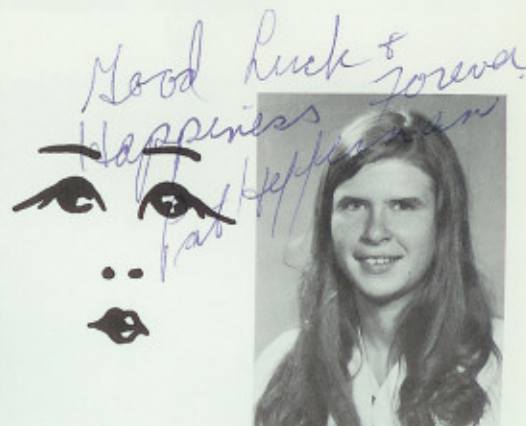 Good Luck &
Happiness Forever
Pat Heffernan